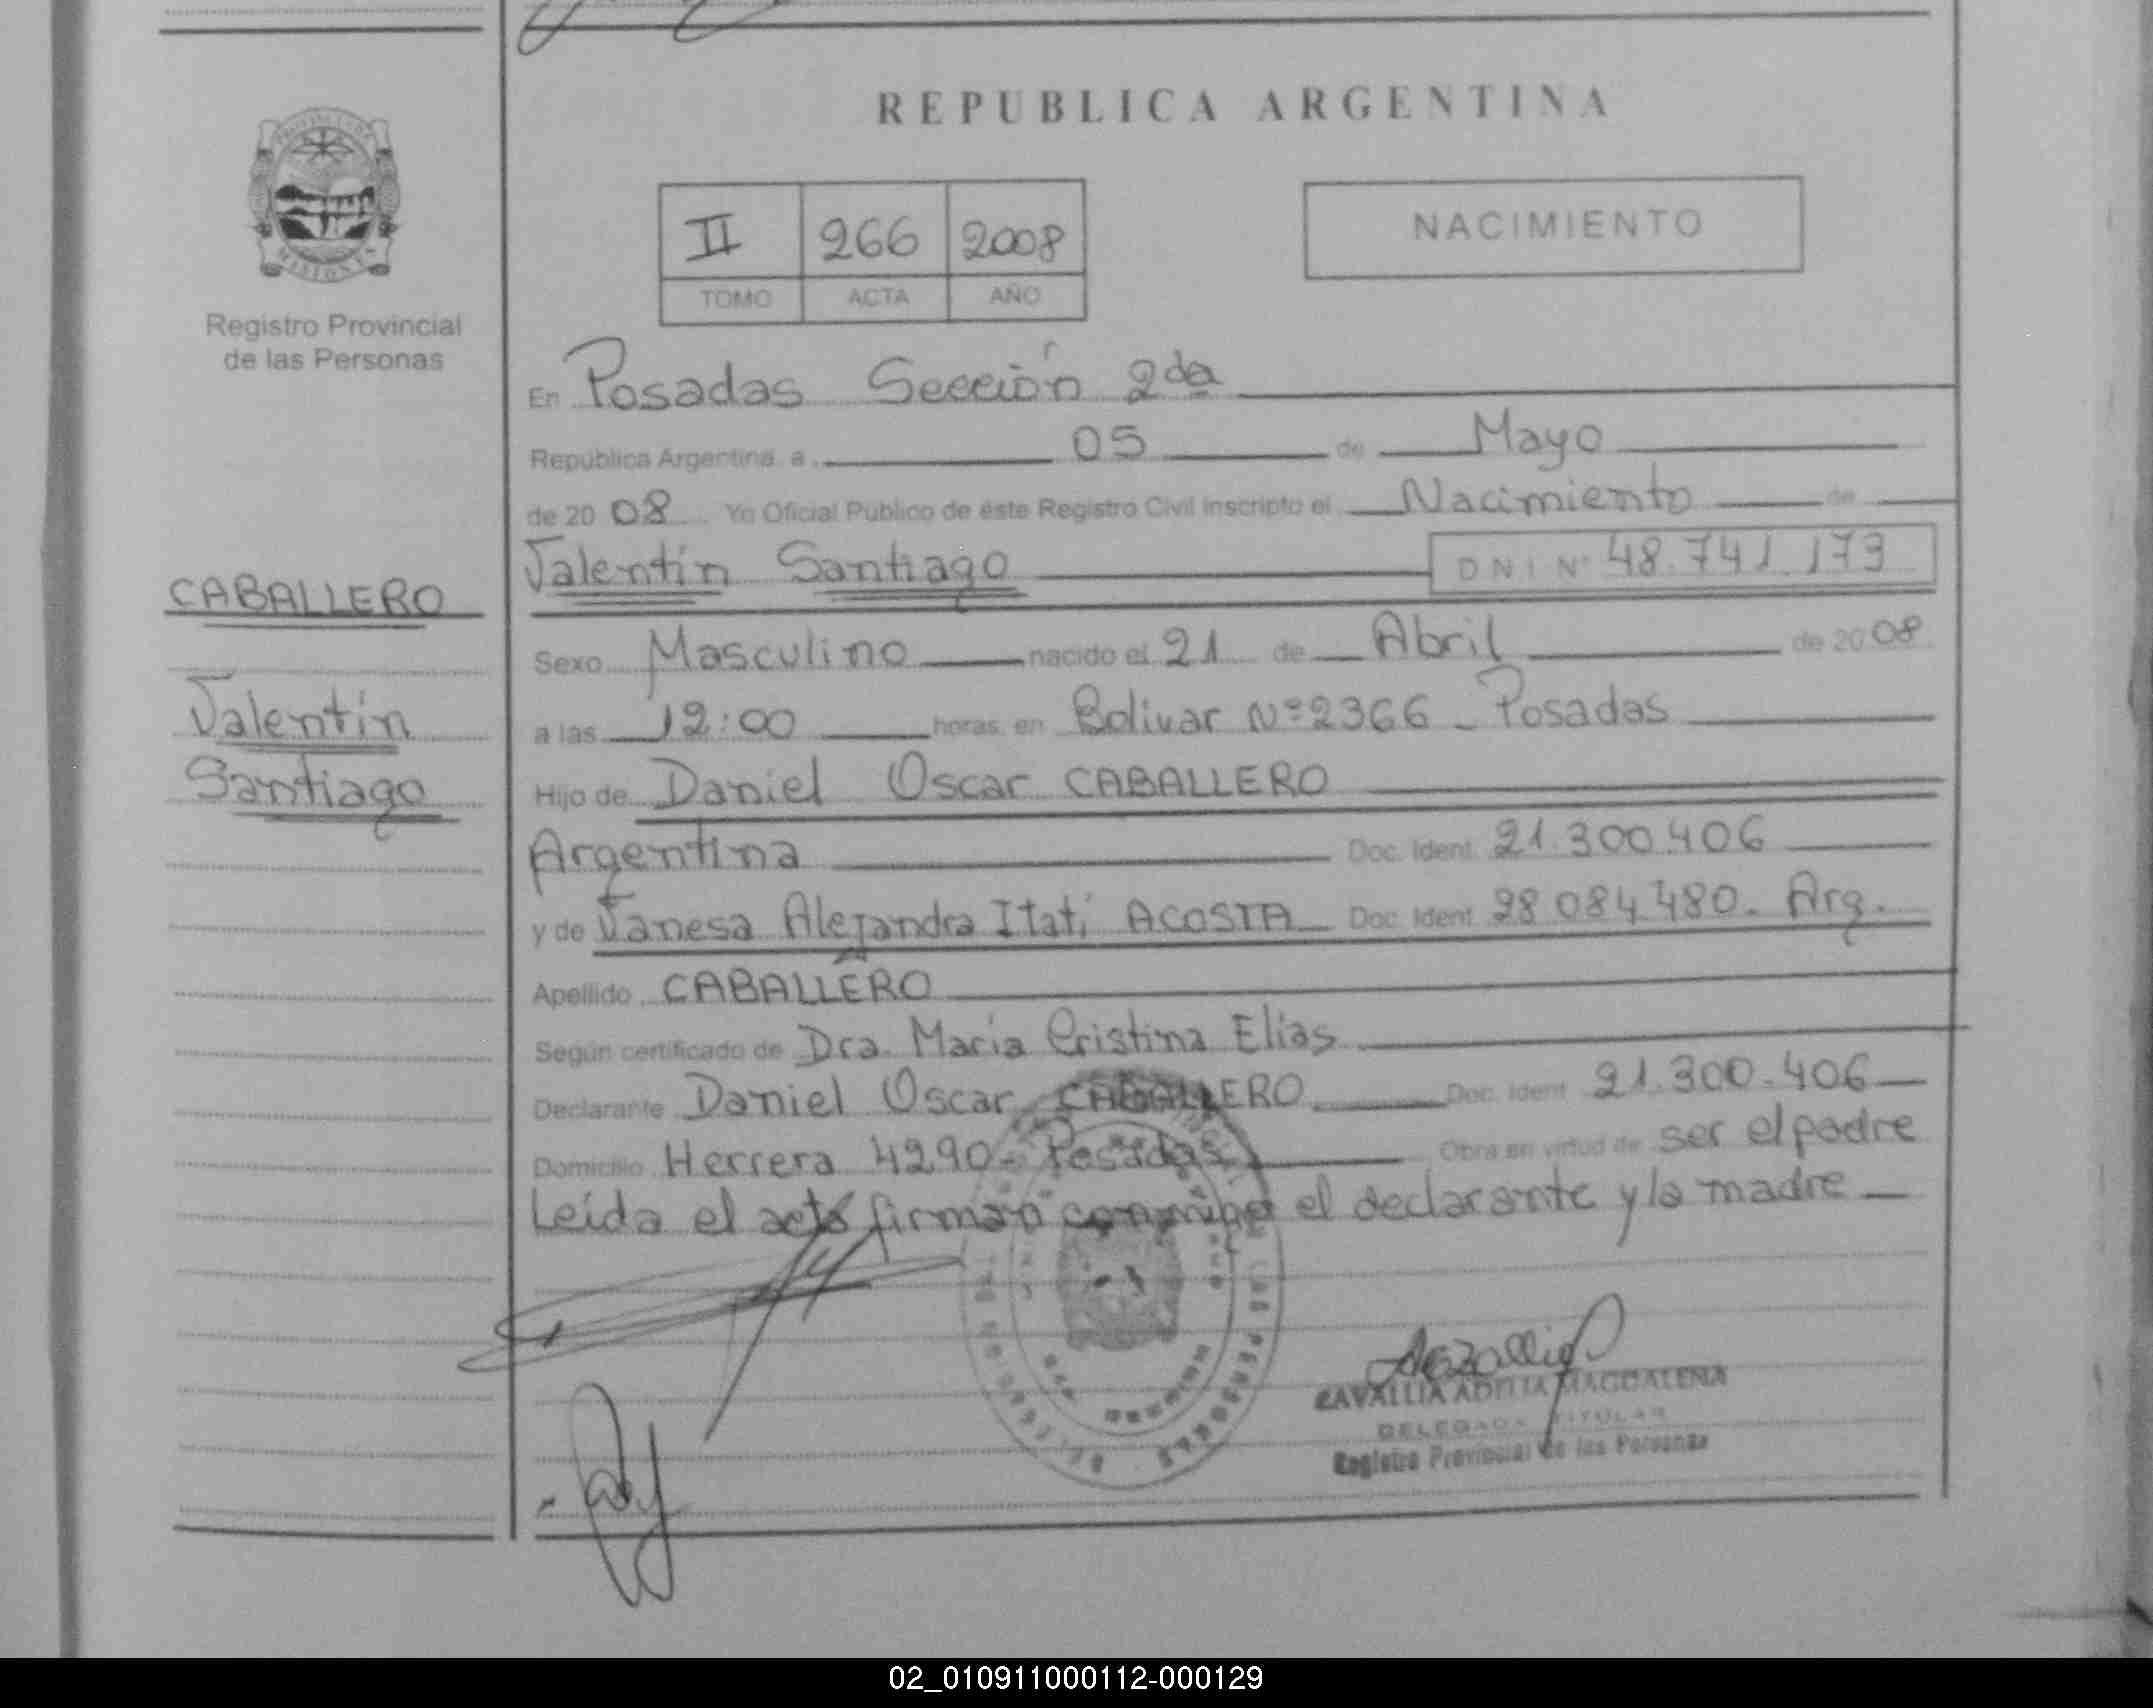 REPUBLICA ARGENTINA
PROVINCIA DE
MISIONES
Registro Provincial
de las Personas
II 266 2008
TOMO ACTA AÑO
NACIMIENTO
En Posadas Sección 2da
República Argentina a 05 de Mayo
de 2008 Yo Oficial Público de éste Registro Civil inscripto el Nacimiento de
Valentín Santiago DNI Nº 48.741.173
CABALLERO
Valentín
Santiago
Sexo Masculino nacido el 21 de Abril de 2008
a las 12:00 horas en Bolivar Nº 2366 - Posadas
Hijo de Daniel Oscar CABALLERO
Argentina Doc. Ident. 21.300.406
y de Vanesa Alejandra Itatí ACOSTA Doc. Ident. 28.084.480. Arg.
Apellido CABALLERO
Según certificado de Dra. María Cristina Elías
Declarante Daniel Oscar CABALLERO Doc. Ident. 21.300.406
Domicilio Herrera 4290 - Posadas Obra en virtud de ser el padre
Leída el acta firman conmigo el declarante y la madre
ZAVALLIA ADELIA MAGDALENA
DELEGADA TITULAR
Registro Provincial de las Personas
02_010911000112-000129